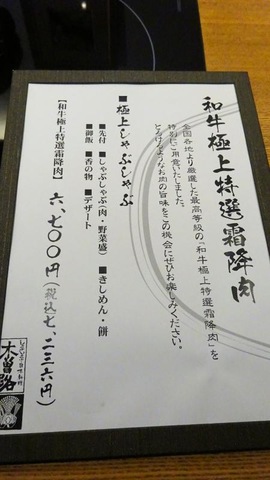 和牛極上特選霜降肉
全国各地より厳選した最高等級の「和牛極上特選霜降肉」を
特別にご用意いたしました。
とろけるようなお肉の旨味をこの機会にぜひお楽しみください。
■極上しゃぶしゃぶ
■先付 ■しゃぶしゃぶ(肉・野菜盛) ■きしめん・餅
■御飯 ■香の物 ■デザート
【和牛極上特選霜降肉】 六、七〇〇円(税込七、二三六円)
木曽路